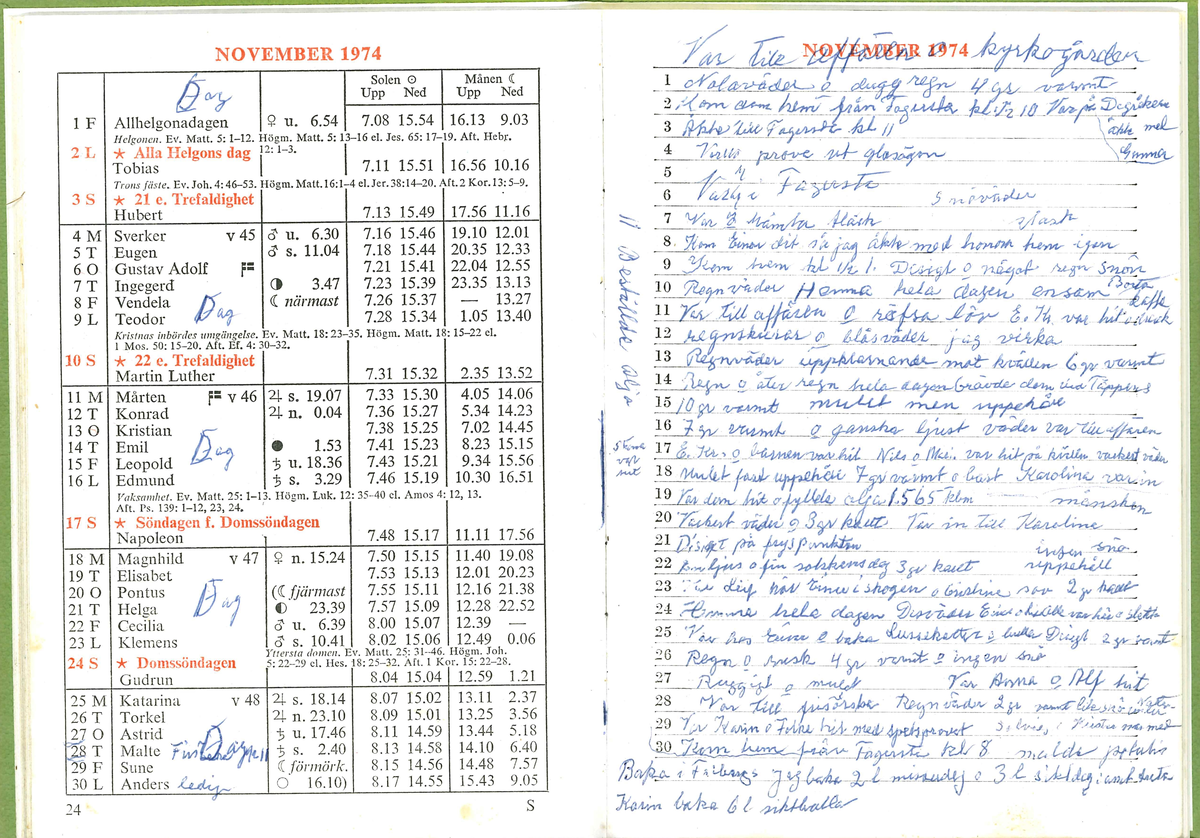 NOVEMBER 1974
Dag
Solen ☉ Månen ☾
Upp Ned Upp Ned
1 F Allhelgonadagen ♀ u. 6.54 7.08 15.54 16.13 9.03
Helgonen. Ev. Matt. 5: 1–12. Högm. Matt. 5: 13–16 el. Jes. 65: 17–19. Aft. Hebr.
12: 1–3.
2 L ★ Alla Helgons dag
Tobias 7.11 15.51 16.56 10.16
Trons fäste. Ev. Joh. 4: 46–53. Högm. Matt. 16: 1–4 el. Jer. 38: 14–20. Aft. 2 Kor. 13: 5–9.
3 S ★ 21 e. Trefaldighet
Hubert 7.13 15.49 17.56 11.16
4 M Sverker v 45 ♂ u. 6.30 7.16 15.46 19.10 12.01
5 T Eugen ♂ s. 11.04 7.18 15.44 20.35 12.33
6 O Gustav Adolf 7.21 15.41 22.04 12.55
7 T Ingegerd ◑ 3.47 7.23 15.39 23.35 13.13
8 F Vendela ☾ närmast 7.26 15.37 — 13.27
9 L Teodor Dag 7.28 15.34 1.05 13.40
Kristnas inbördes umgängelse. Ev. Matt. 18: 23–35. Högm. Matt. 18: 15–22 el.
1 Mos. 50: 15–20. Aft. Ef. 4: 30–32.
10 S ★ 22 e. Trefaldighet
Martin Luther 7.31 15.32 2.35 13.52
11 M Mårten v 46 ♃ s. 19.07 7.33 15.30 4.05 14.06
12 T Konrad ♃ n. 0.04 7.36 15.27 5.34 14.23
13 O Kristian 7.38 15.25 7.02 14.45
14 T Emil Dag ● 1.53 7.41 15.23 8.23 15.15
15 F Leopold ♄ u. 18.36 7.43 15.21 9.34 15.56
16 L Edmund ♄ s. 3.29 7.46 15.19 10.30 16.51
Vaksamhet. Ev. Matt. 25: 1–13. Högm. Luk. 12: 35–40 el. Amos 4: 12, 13.
Aft. Ps. 139: 1–12, 23, 24.
17 S ★ Söndagen f. Domssöndagen
Napoleon 7.48 15.17 11.11 17.56
18 M Magnhild v 47 ♀ n. 15.24 7.50 15.15 11.40 19.08
19 T Elisabet 7.53 15.13 12.01 20.23
20 O Pontus Dag (☾ fjärmast 7.55 15.11 12.16 21.38
21 T Helga ◐ 23.39 7.57 15.09 12.28 22.52
22 F Cecilia ♂ u. 6.39 8.00 15.07 12.39 —
23 L Klemens ♂ s. 10.41 8.02 15.06 12.49 0.06
Yttersta domen. Ev. Matt. 25: 31–46. Högm. Joh.
5: 22–29 el. Hes. 18: 25–32. Aft. 1 Kor. 15: 22–28.
24 S ★ Domssöndagen
Gudrun 8.04 15.04 12.59 1.21
25 M Katarina v 48 ♃ s. 18.14 8.07 15.02 13.11 2.37
26 T Torkel ♃ n. 23.10 8.09 15.01 13.25 3.56
27 O Astrid ♄ u. 17.46 8.11 14.59 13.44 5.18
28 T Malte Dag ♄ s. 2.40 8.13 14.58 14.10 6.40
29 F Sune ☾ förmörk. 8.15 14.56 14.48 7.57
30 L Anders ledig ○ 16.10) 8.17 14.55 15.43 9.05
24 S
NOVEMBER 1974
Var till affären o kyrkogården
1 Nolaväder o dugg regn 4 gr varmt
2 Kom dom hem från Fagersta kl ½ 10 Var på Dagöker
3 Åkte till Fagersta kl 11 åkte med
4 prova ut glasögon Gunnar
5
6 i Fagersta Snöväder
7 Var o hämta fläsk slask
8 Kom Einar dit så jag åkte med honom hem igen
9 Kom hem kl ½ 1. Disigt o något regn snön
10 Regnväder Hemma hela dagen ensam Borta
11 Var till affären o räfsa löv E. Kr. var hit o drack kaffe
12 regnskurar o blåsväder jag virka
13 Regnväder uppklarnande mot kvällen 6 gr varmt
14 Regn o åter regn hela dagen Grävde dom vid Täppens
15 10 gr varmt mulet men uppehåll
16 7 gr varmt o ganska ljust väder var till affären
17 E. Kr. o barnen var hit Nils o Mai. var hit på kvällen vackert väder
18 Mulet fast uppehåll 7 gr varmt o bast Karolina var in
19 Var dom hit o fyllde olja 1.565 månsken
20 Vackert väder o 3 gr kallt Var in till Karolina
21 Disigt på fryspunkten ingen snö
22 ljus o fin solskensdag 3 gr kallt uppehåll
23 Leif här Einar i skogen o Cristina sov 2 gr kallt
24 Hemma hela dagen Disväder
25 Var hos Einar o baka Lussekatter o bulla Disigt 2 gr varmt
26 Regn o rusk 4 gr varmt o ingen snö
27 Ruggigt o mulet Var Anna o Alf hit
28 Var till frisörska Regnväder 2 gr varmt
29 Var Karin o Folke hit med
30 Kom hem från Fagersta kl 8 malde potatis
Baka i Jag baka 2 l o 3 l
Karin baka 6 l siktbulla
11 Beställde olja